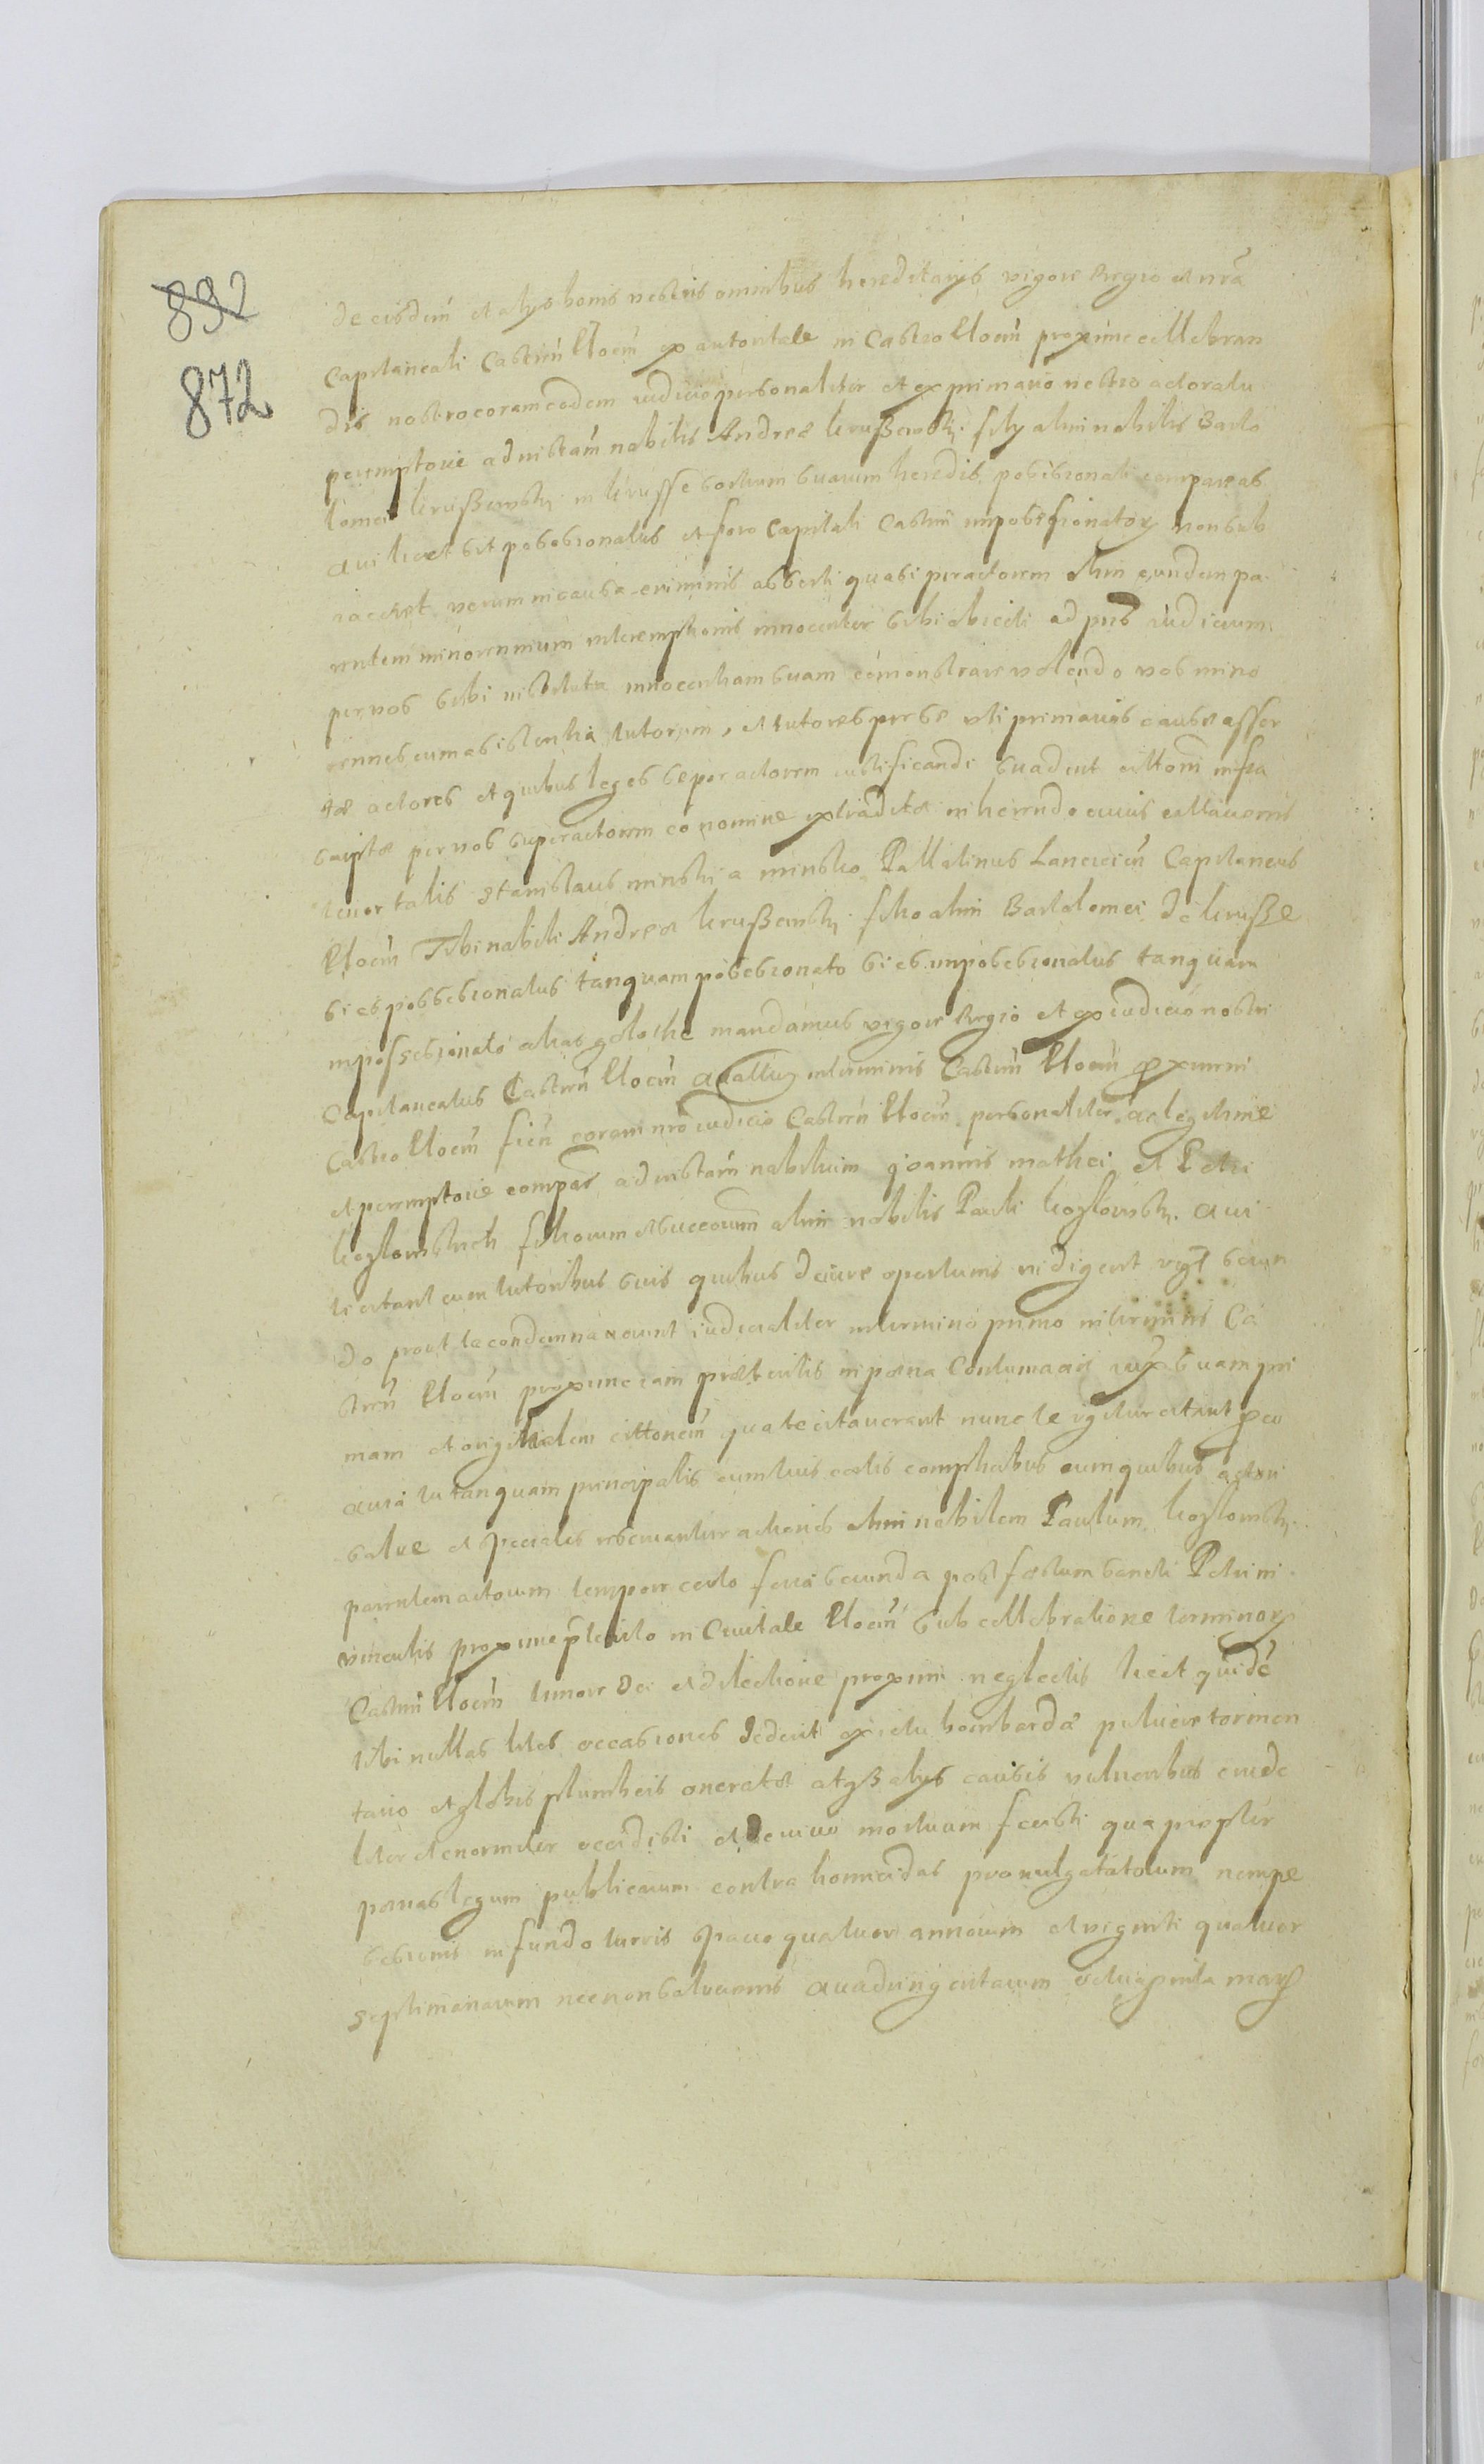 832
872
de eisdem et alys bonis vestris omnibus hereditarys vigore Regio et nrã
Capitaneali Castrñ Plocñ ex autoritate in Castro Plocñ proxime cellebran
dis nostro coram eodem iudicio personaliter et ex primario vestro actoratu
peremptorie ad instam nobilis Andreæ krußewski fily olim nobilis Barto
lomei krußewski in krusse sortium suarum heredis possesionati compareas
qui licet sit possesionatus et foro Capitali Castrñ impossesionator non sub
iaceret verum in causa criminis asserti quasi per actorem olim eundem pa
rentem minorennium interemptionis innocenter sibi obiecti ad pns iudicium
per vos sibi institutæ innocentiam suam comonstrare volendo vos mino
rennes cum asistentia tutorum, et tutores per se uti primarios causæ asser
tæ actores et quibus leges se per actorem iustificandi suadent cittoni infra
scriptæ per vos super actorem eo nomine extraditæ inherendo cuius cittaveris
tenor talis Stanislaus minski a minsko Pallatinus Lanciciñ Capitaneus
Plocñ Tibi nobili Andreæ krußewski filio olim Bartolomei de krusße
si es possesionatus tanquam possesionato si es impossesionatus tanquam
impossesionato alias gołothe mandamus vigore Regio et ex iudicio nostri
Capitaneatus Castrñ Plocñ quattus in terminis Castrñ Plocñ proximi
Castro Plocñ fieñ coram nro iudicio Castrñ Plocñ personaliter ac legitime
et peremptorie compas ad instam nobilium Joannis mathei et Petri
kozlowskich filiorum et succorum olim nobilis Pauli kozlowski. qui
te citant cum tutoribus suis quibus de iure oportunis indigent
do prout te condemnaverunt iudicialiter in termino primo in terminis Ca
strñ Plocñ proxime iam præteritis in pæna Contumaciæ iuxta suam pri
mam et originalem cittonem qua te citaverant nunc te igitur citant pro eo
quia tu tanquam principalis cum tuis cætis complicibus cum quibus actori
salve et speciales reservantur actiones olim nobilem Paulum kozlowski
parentem actorum tempore certo feria secunda post festum sancti Petri in
vinculis proxime pterito in Civitate Plocñ sub cellebratione terminor
Castrñ Plocñ timore Dei et dilectione proximi neglectis licet quidé
tibi nullas lites occasiones dederit ex ictu bombardæ pulvere tormen
tario et globis plumbeis oneratæ atque alys causis vulneribus crude
liter et enormiter occidisti et de vivo mortuum fecisti qua propter
pænas legum publicarum contra homicidas promulgatatorum nempe
sesionis in fundo turris spacio quatuor annorum et viginti quatuor
septimanarum necnon solucionis quadringentarum octuaginta marc